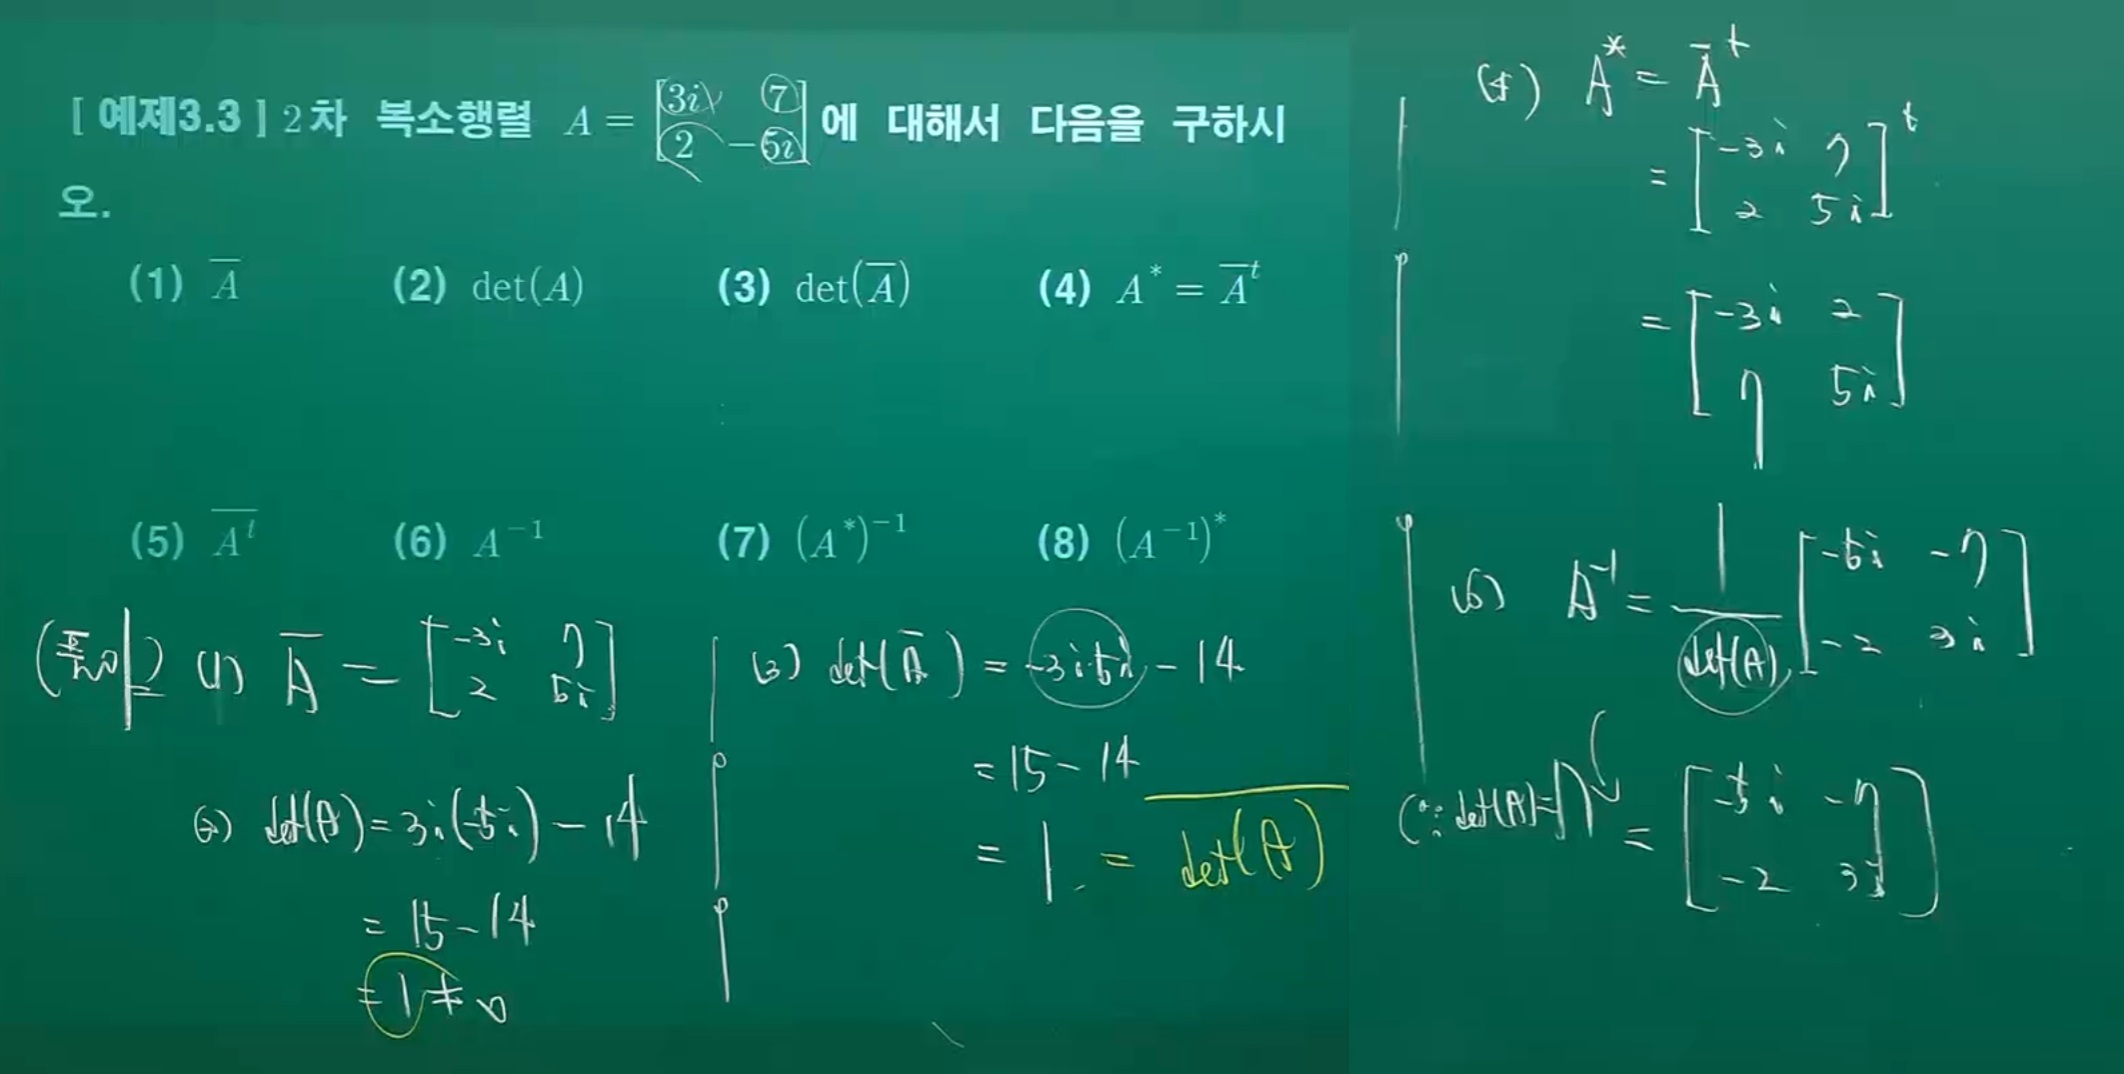 [ 예제3.3 ] 2차 복소행렬 A = [3i 7; 2 −5i] 에 대해서 다음을 구하시
오.
(1) A̅ (2) det(A) (3) det(A̅) (4) A* = A̅ᵗ
(5) A̅ᵗ̅ (6) A⁻¹ (7) (A*)⁻¹ (8) (A⁻¹)*
(풀이) (1) A̅ = [-3i 7; 2 5i]
(2) det(A) = 3i(-5i) − 14
= 15 − 14
= 1 ≠ 0
(3) det(A̅) = -3i·5i − 14
= 15 − 14
= 1 = d̅e̅t̅(̅A̅)̅
(4) A* = A̅ᵗ
= [-3i 7; 2 5i]ᵗ
= [-3i 2; 7 5i]
(6) A⁻¹ = 1/det(A) [-5i -7; -2 3i]
(∵ det(A)=1) = [-5i -7; -2 3i]